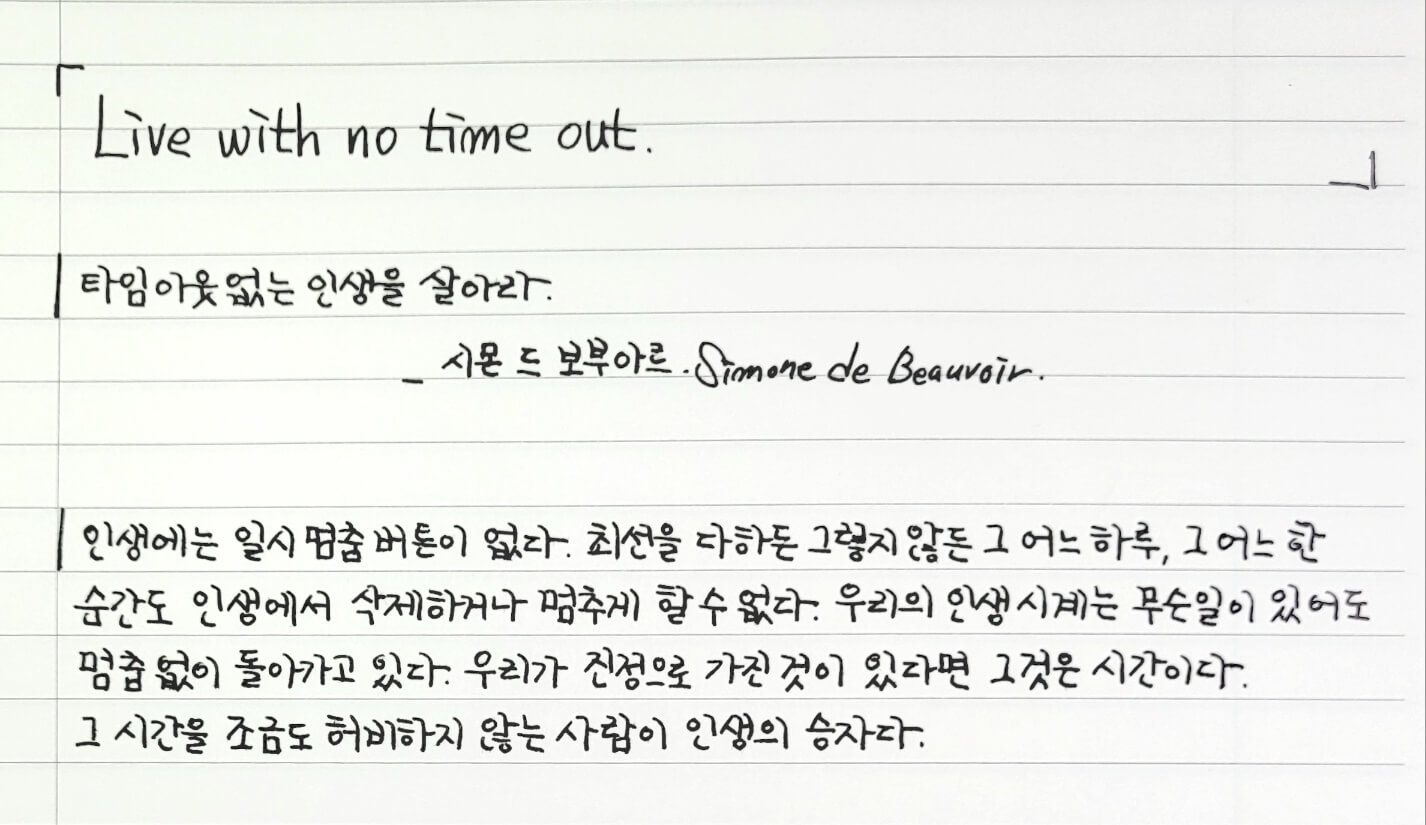 「Live with no time out.」
타임아웃없는 인생을 살아라.
_ 시몬 드 보부아르. Simone de Beauvoir.
인생에는 일시 멈춤 버튼이 없다. 최선을 다하든 그렇지 않든 그 어느 하루, 그 어느 한
순간도 인생에서 삭제하거나 멈추게 할 수 없다. 우리의 인생시계는 무슨일이 있어도
멈춤없이 돌아가고 있다. 우리가 진정으로 가진 것이 있다면 그것은 시간이다.
그 시간을 조금도 허비하지 않는 사람이 인생의 승자다.